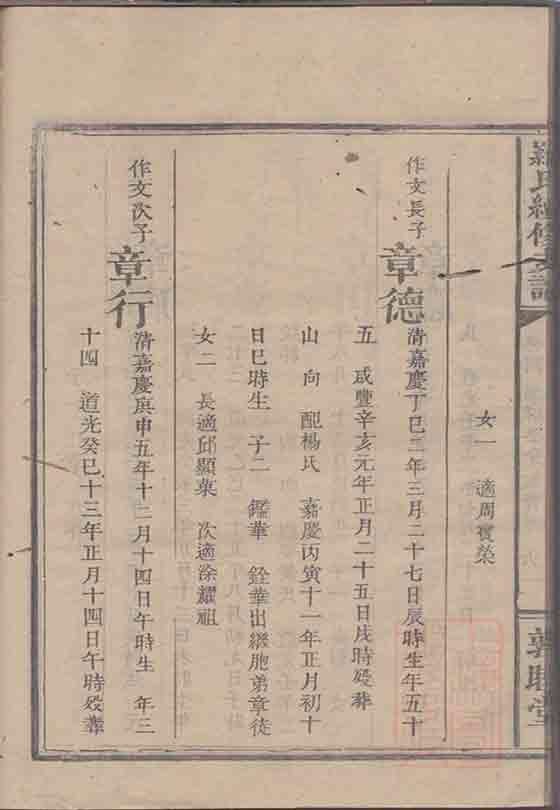 氏續修支譜
敦睦堂
女一 適周賓榮
作文長子 章德 清嘉慶丁巳二年三月二十七日辰時生年五十
五 咸豐辛亥元年正月二十五日戌時歿葬
山 向 配楊氏 嘉慶丙寅十一年正月初十
日巳時生 子二 鑑華 銓華出繼胞弟章徒
女二 長適邱顯菓 次適涂耀祖
作文次子 章行 清嘉慶庚申五年十二月十四日午時生 年三
十四 道光癸巳十三年正月十四日午時歿葬